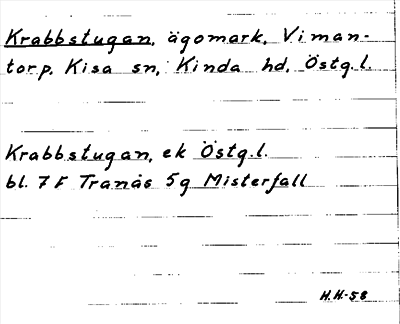 Krabbstugan, ägomark, Viman-
torp, Kisa sn, Kinda hd, Östg.l.
Krabbstugan, ek Östg.l.
bl. 7F Tranås 5g Misterfall
H.H-58